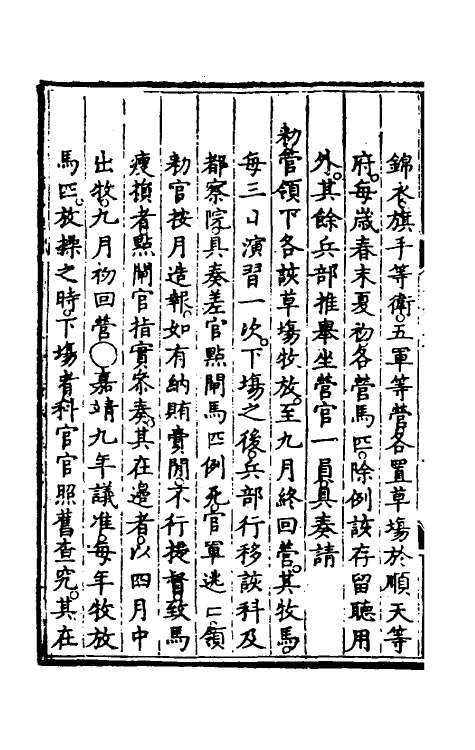 錦衣旗手等衛。五軍等營各置草場於順天等
府。每歲春末夏初各營馬匹。除例該存留聽用
外。其餘兵部推舉坐營官一員具奏請
勑管領下各該草場牧放。至九月終回營。其牧馬。
每三日演習一次。下場之後。兵部行移該科及
都察院具奏差官點閘馬匹例死。官軍逃亡。領
勑官按月造報。如有納賄賣閒。不行提督致馬
瘦損者點閘官指實參奏。其在邊者。以四月中
出牧。九月初回營○嘉靖九年議准。每年牧放
馬匹。放操之時。下場者科官官照舊查究。其在